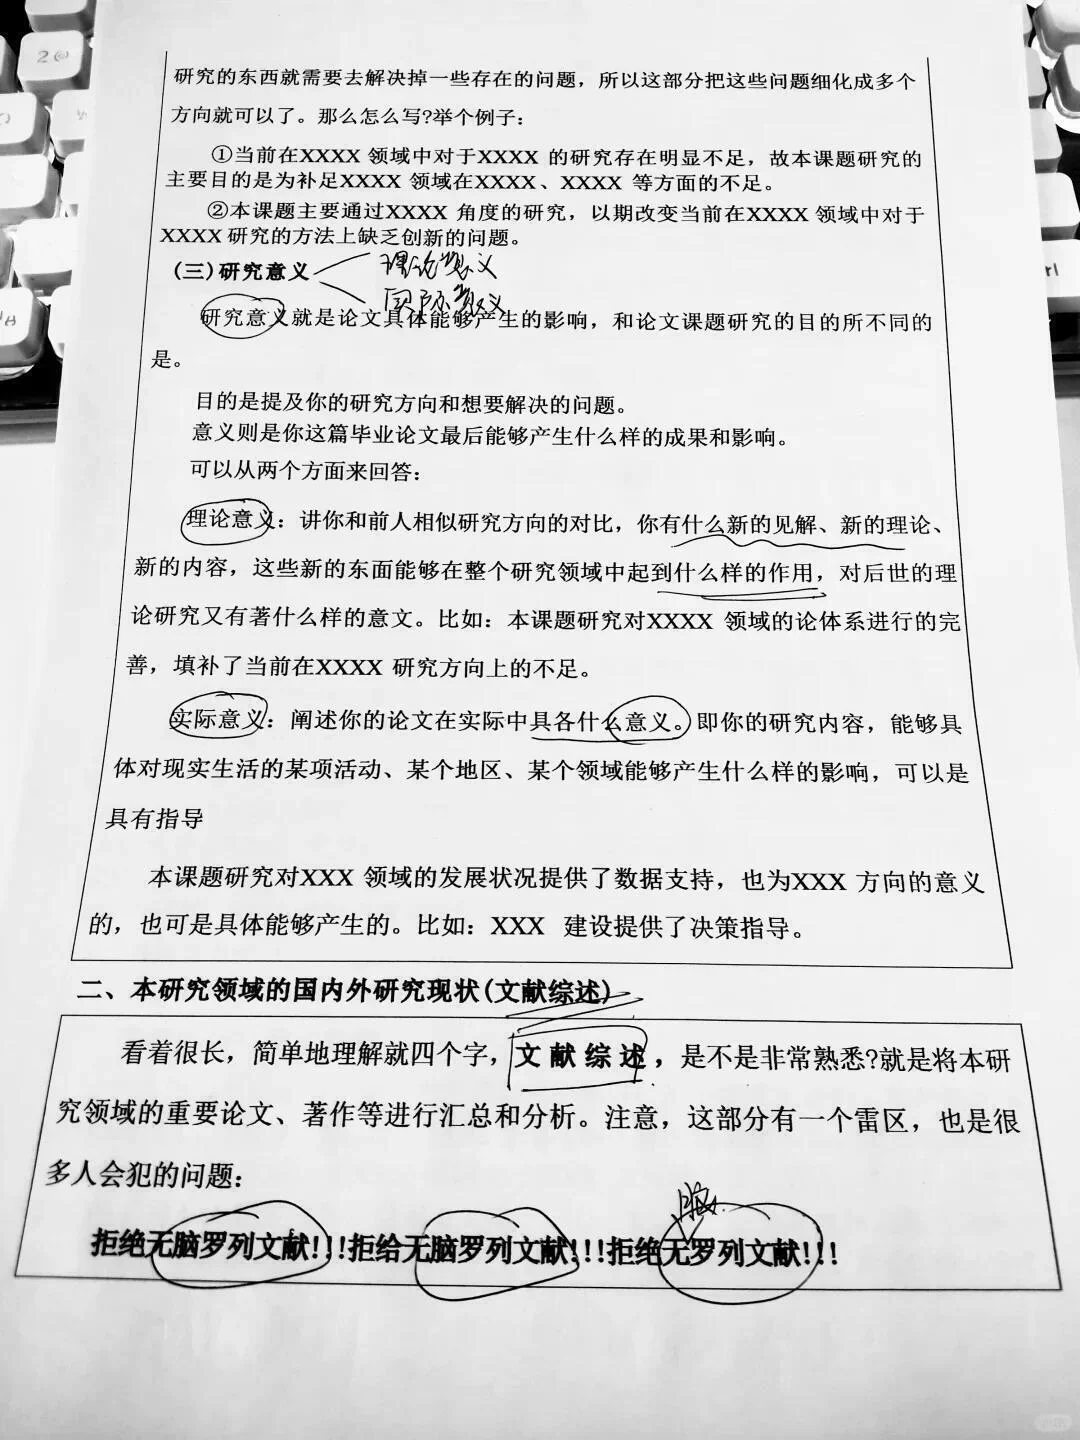 研究的东西就需要去解决掉一些存在的问题，所以这部分把这些问题细化成多个
方向就可以了。那么怎么写?举个例子：
①当前在XXXX 领域中对于XXXX 的研究存在明显不足，故本课题研究的
主要目的是为补足XXXX 领域在XXXX、XXXX 等方面的不足。
②本课题主要通过XXXX 角度的研究，以期改变当前在XXXX 领域中对于
XXXX 研究的方法上缺乏创新的问题。
(三)研究意义
理论意义
实际意义
研究意义就是论文具体能够产生的影响，和论文课题研究的目的所不同的
是。
目的是提及你的研究方向和想要解决的问题。
意义则是你这篇毕业论文最后能够产生什么样的成果和影响。
可以从两个方面来回答：
理论意义：讲你和前人相似研究方向的对比，你有什么新的见解、新的理论、
新的内容，这些新的东面能够在整个研究领域中起到什么样的作用，对后世的理
论研究又有著什么样的意文。比如：本课题研究对XXXX 领域的论体系进行的完
善，填补了当前在XXXX 研究方向上的不足。
实际意义：阐述你的论文在实际中具各什么意义。即你的研究内容，能够具
体对现实生活的某项活动、某个地区、某个领域能够产生什么样的影响，可以是
具有指导
本课题研究对XXX 领域的发展状况提供了数据支持，也为XXX 方向的意义
的，也可是具体能够产生的。比如：XXX 建设提供了决策指导。
二、本研究领域的国内外研究现状(文献综述)
看着很长，简单地理解就四个字，文献综述，是不是非常熟悉?就是将本研
究领域的重要论文、著作等进行汇总和分析。注意，这部分有一个雷区，也是很
多人会犯的问题:
脑
拒绝无脑罗列文献!!!拒给无脑罗列文献!!!拒绝无罗列文献!!!